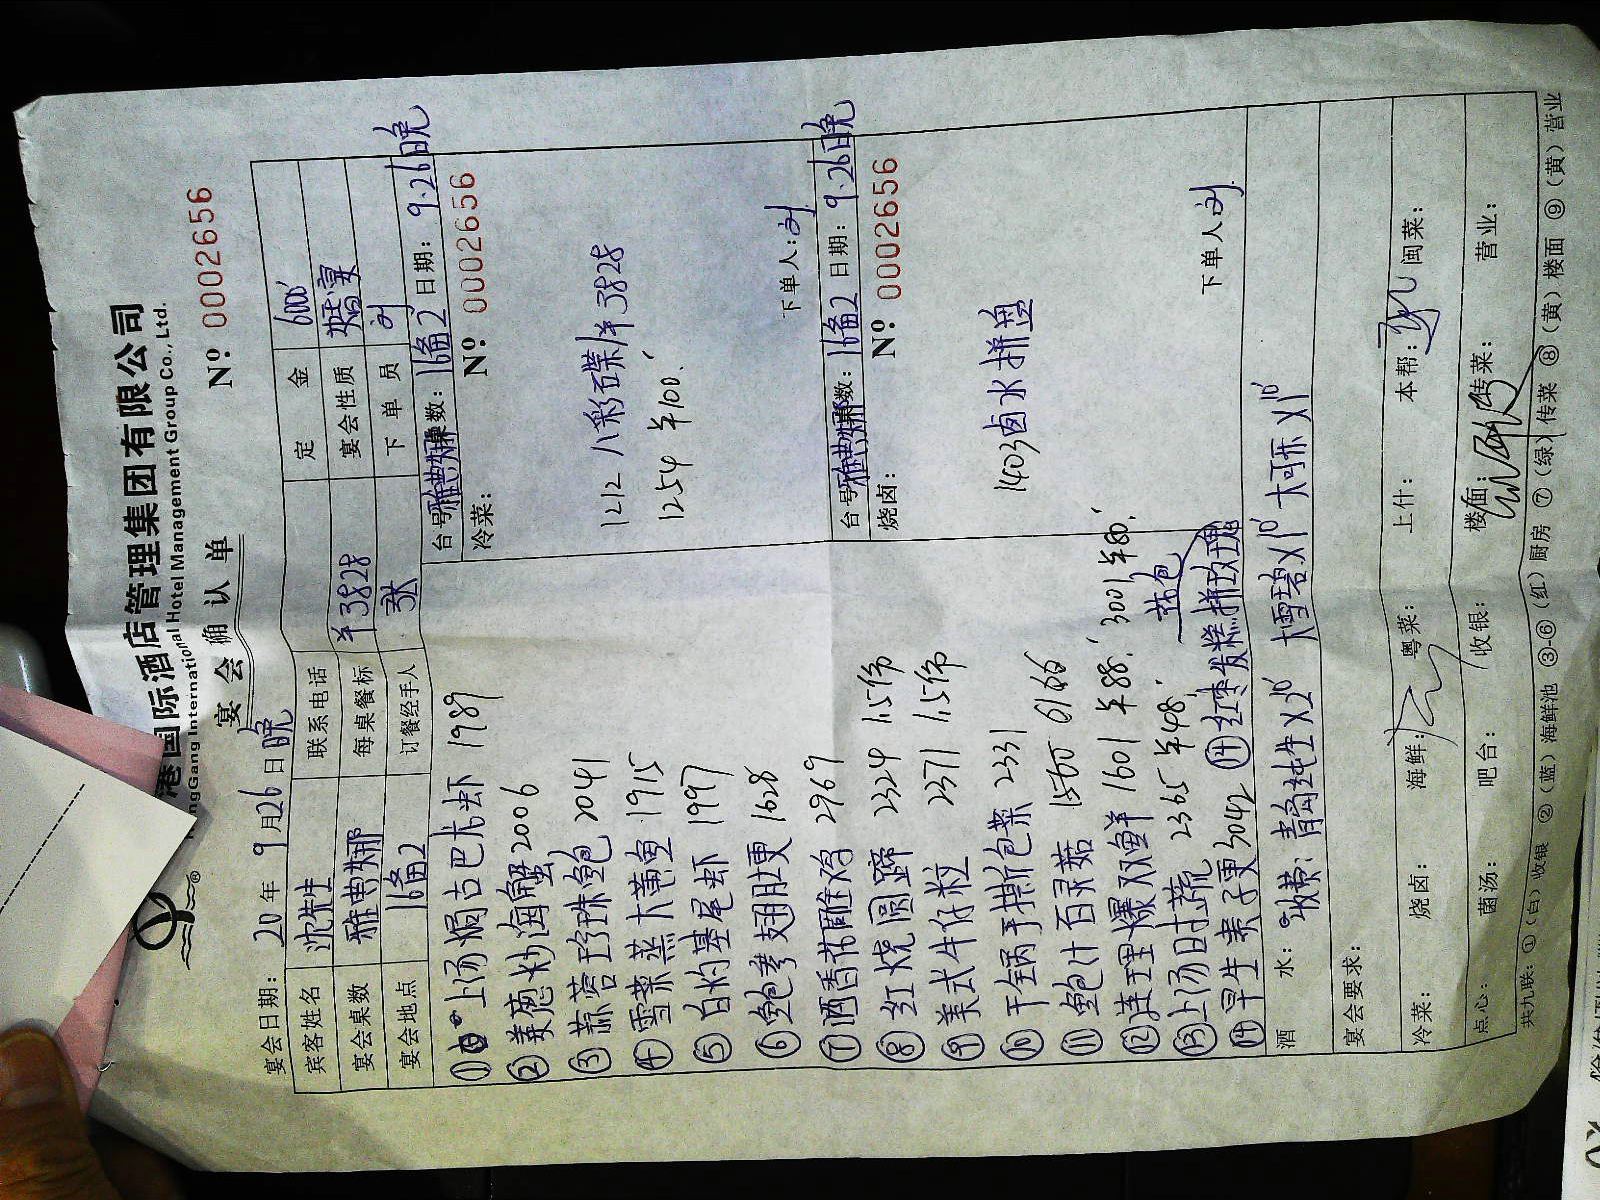 港国际酒店管理集团有限公司
GangGang International Hotel Management Group Co., Ltd.
宴会确认单
Nº 0002656
宴会日期: 20 年 9月26日 晚
宾客姓名 联系电话 定金 6000
宴会桌数 雅典娜 每桌餐标 半3828 宴会性质 婚宴
宴会地点 16备2 订餐经手人 张 下单员 刘
① 上汤焗古巴大虾 1989
② 姜葱炒海蟹 2006
③ 蒜蓉珍珠鲍 2041
④ 雪菜蒸大黄鱼 1915
⑤ 白灼基尾虾 1997
⑥ 鲍参翅肚更 1628
⑦ 洒香花雕鸡 2969
⑧ 红烧圆蹄 2324 1.5份
⑨ 美式牛仔粒 2371 1.5份
⑩ 干锅手撕包菜 2331
⑪ 鲍汁百灵菇 1560 6166
⑫ 连理爆双鲜 1601 半88. 3001 半80.
⑬ 上汤时蔬 2365 半48.
⑭ 早生贵子更 3042 ⑭ 红枣发糕拼玫瑰
台号: 雅典娜 桌数: 16备2 日期: 9.26日晚
冷菜: Nº 0002656
1212 八彩碟 半3828
1254 半100.
下单人: 刘
台号: 雅典娜 桌数: 16备2 日期: 9.26日晚
烧卤: Nº 0002656
1403 卤水拼盘
下单人: 刘
酒水: 收费: 青岛纯生X20 大雪碧X10 大可乐X10
宴会要求:
冷菜: 烧卤: 海鲜: 粤菜: 上什: 本帮: 闽菜:
点心: 菌汤: 吧台: 收银: 楼面: 传菜: 营业:
共九联: ①(白)收银 ②(蓝)海鲜池 ③-⑥(红)厨房 ⑦(绿)传菜 ⑧(黄)楼面 ⑨(黄)营业